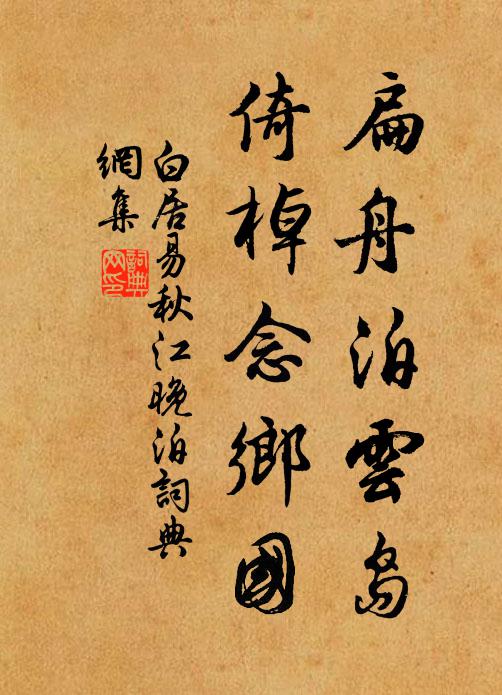 扁舟泊雲島
倚棹念鄉國
白居易秋江晚泊詞典
網集
詞典
网印